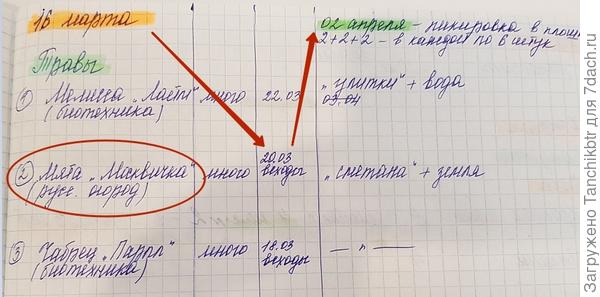 16 марта
02 апреля - пикировка в
2+2+2 - в каждой по 6 штук
Травы
① Мелисса "Ластя" много 22.03 "улитки" + вода
(биотехника) 03.04
② Мята "Москвичка" много 20.03 всходы "сметана" + земля
(русс. огород)
③ Чабрец "Перпл" много 18.03 всходы — " —
(биотехника)
Загружено Tanchikbtr для 7dach.ru